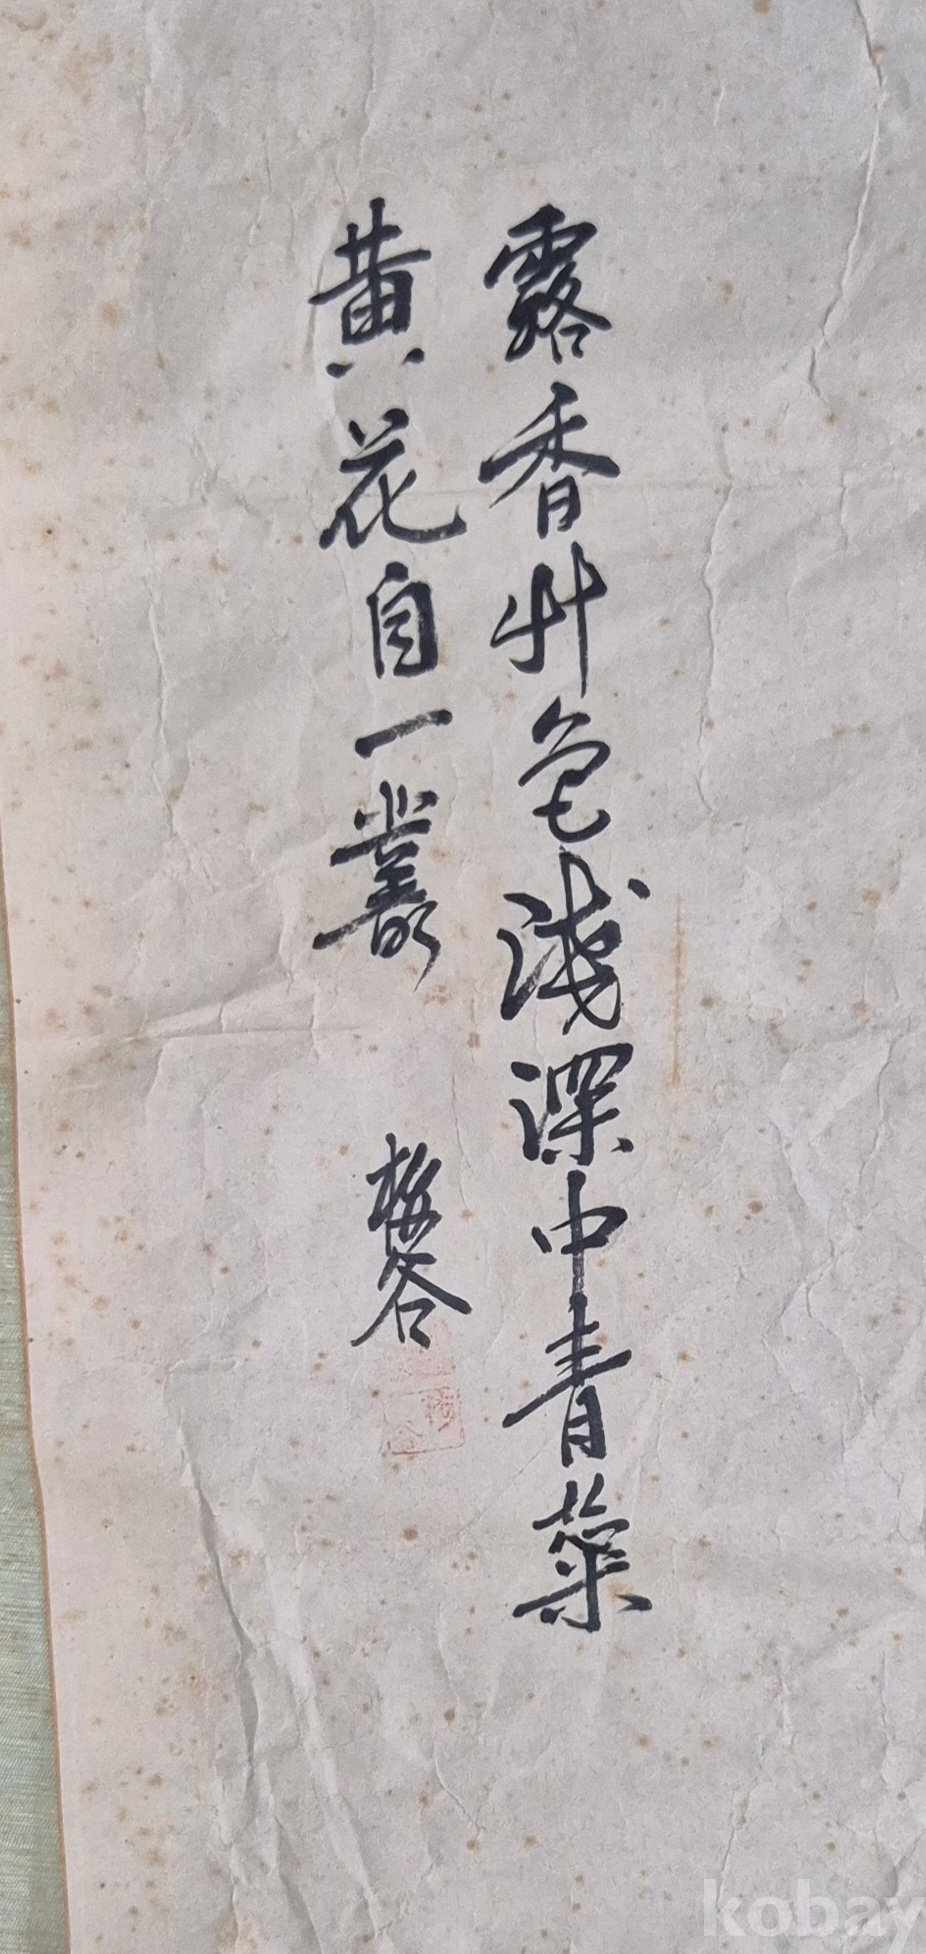 露香艸色淺深中青葉
黄花自一叢
梅谷
kobay